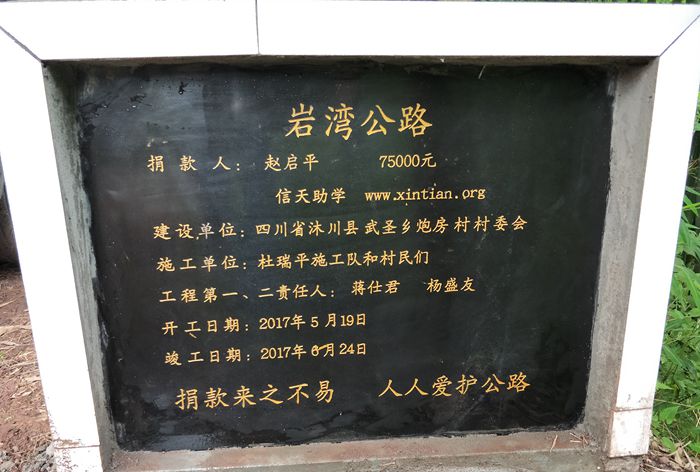 岩湾公路
捐款人：赵启平 75000元
信天助学 www.xintian.org
建设单位：四川省沐川县武圣乡炮房村村委会
施工单位：杜瑞平施工队和村民们
工程第一、二责任人：蒋仕君 杨盛友
开工日期：2017年5月19日
竣工日期：2017年6月24日
捐款来之不易 人人爱护公路